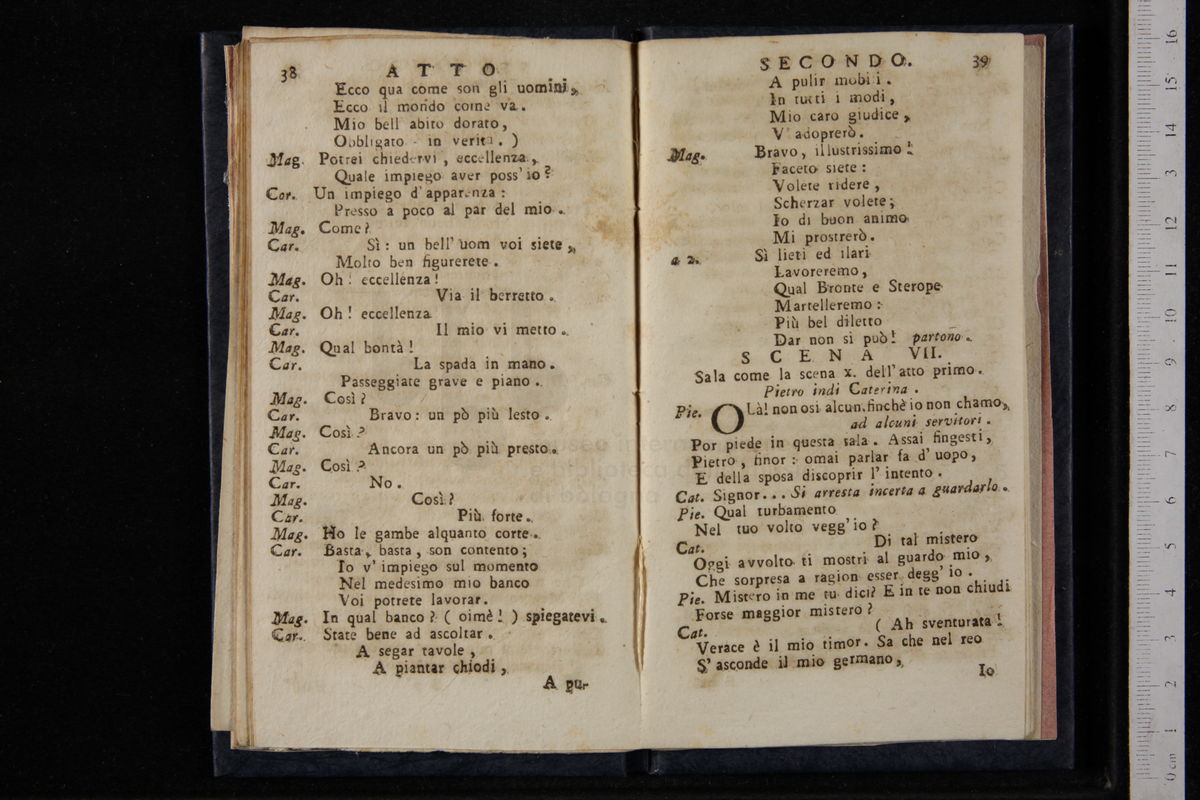 38 ATTO
Ecco qua come son gli uomini,
Ecco il mondo come va.
Mio bell abito dorato,
Obbligato - in verità. )
Mag. Potrei chiedervi, eccellenza,
Quale impiego aver poss' io?
Cor. Un impiego d'apparenza:
Presso a poco al par del mio.
Mag. Come?
Car. Sì: un bell' uom voi siete,
Molto ben figurerete.
Mag. Oh! eccellenza!
Car. Via il berretto.
Mag. Oh! eccellenza
Car. Il mio vi metto.
Mag. Qual bontà!
Car. La spada in mano.
Passeggiate grave e piano.
Mag. Così?
Car. Bravo: un pò più lesto.
Mag. Così?
Car. Ancora un pò più presto.
Mag. Così?
Car. No.
Mag. Così?
Car. Più forte.
Mag. Ho le gambe alquanto corte.
Car. Basta, basta, son contento;
Io v' impiego sul momento
Nel medesimo mio banco
Voi potrete lavorar.
Mag. In qual banco? ( oimè! ) spiegatevi.
Car. State bene ad ascoltar.
A segar tavole,
A piantar chiodi,
A pu-
SECONDO. 39
A pulir mobili.
In tutti i modi,
Mio caro giudice,
V' adoprerò.
Mag. Bravo, illustrissimo!
Faceto siete:
Volete ridere,
Scherzar volete;
Io di buon animo
Mi prostrerò.
a 2. Sì lieti ed ilari
Lavoreremo,
Qual Bronte e Sterope
Martelleremo:
Più bel diletto
Dar non si può! partono.
SCENA VII.
Sala come la scena x. dell'atto primo.
Pietro indi Caterina.
Pie. OLà! non osi alcun, finchè io non chamo,
ad alcuni servitori.
Por piede in questa sala. Assai fingesti,
Pietro, finor: omai parlar fa d' uopo,
E della sposa discoprir l' intento.
Cat. Signor... Si arresta incerta a guardarlo.
Pie. Qual turbamento
Nel tuo volto vegg' io?
Cat. Di tal mistero
Oggi avvolto ti mostri al guardo mio,
Che sorpresa a ragion esser degg' io.
Pie. Mistero in me tu dici? E in te non chiudi
Forse maggior mistero?
Cat. ( Ah sventurata!
Verace è il mio timor. Sa che nel reo
S' asconde il mio germano,
Io